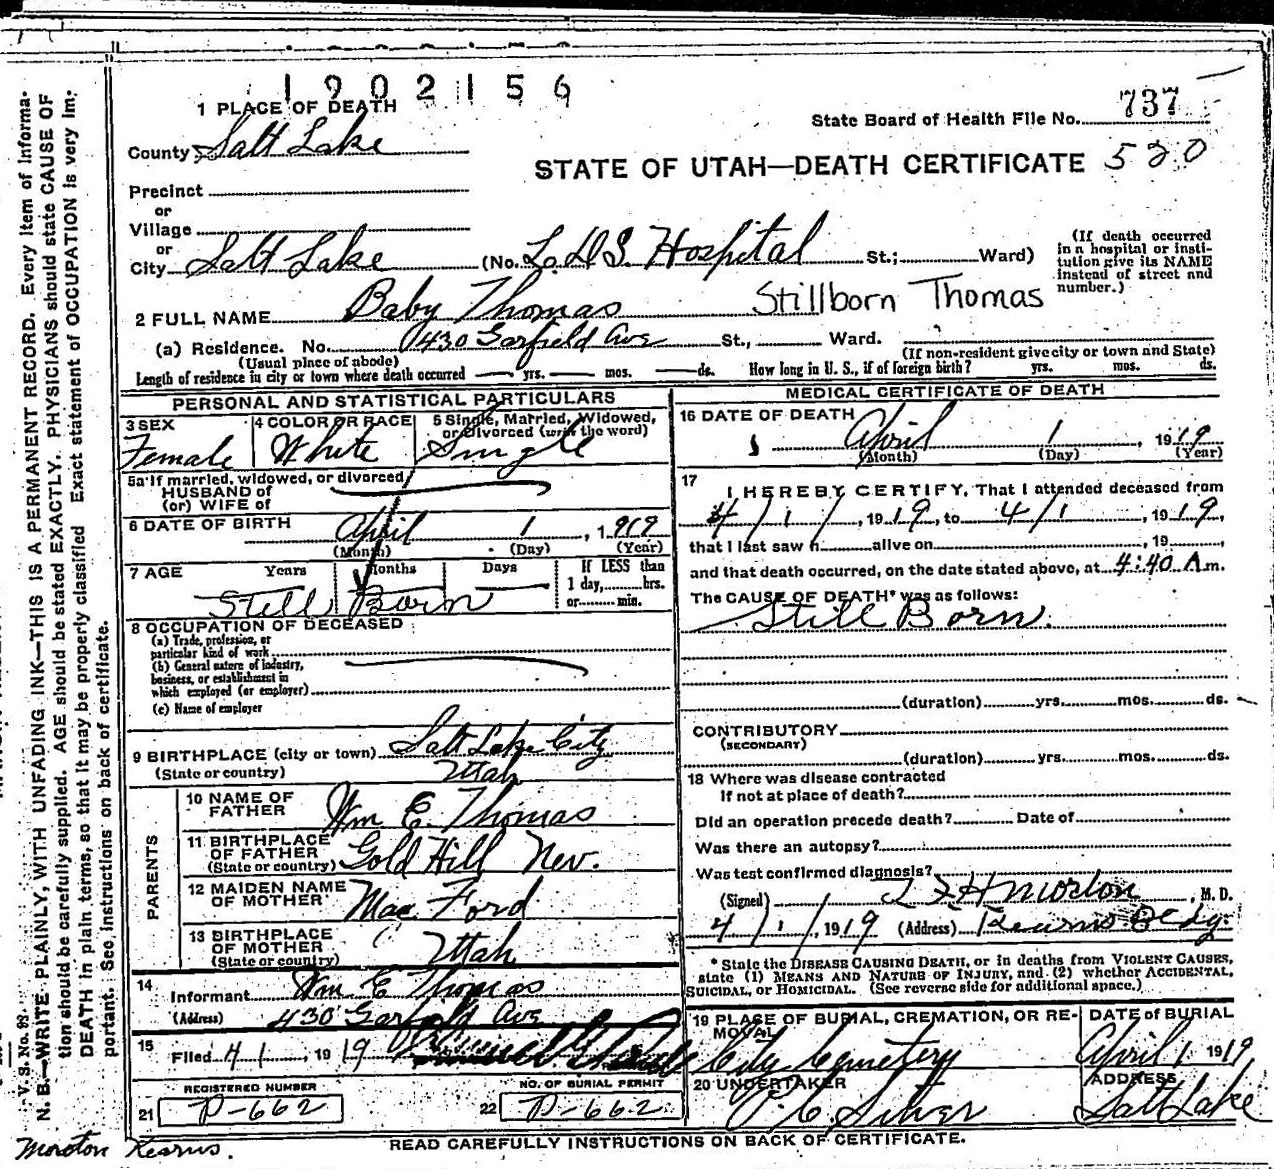 1902156
1 PLACE OF DEATH
State Board of Health File No. 737
County Salt Lake
STATE OF UTAH—DEATH CERTIFICATE 520
Precinct
or
Village
or
City Salt Lake (No. L.D.S. Hospital St.; Ward)
(If death occurred in a hospital or insti-
tution give its NAME instead of street and
number.)
2 FULL NAME Baby Thomas Stillborn Thomas
(a) Residence. No. 430 Garfield Ave St., Ward.
(Usual place of abode) (If non-resident give city or town and State)
Length of residence in city or town where death occurred — yrs. — mos. — ds. How long in U. S., if of foreign birth? yrs. mos. ds.
PERSONAL AND STATISTICAL PARTICULARS
3 SEX Female
4 COLOR OR RACE White
5 Single, Married, Widowed, or Divorced (write the word) Single
5a If married, widowed, or divorced
HUSBAND of
(or) WIFE of
6 DATE OF BIRTH April 1, 1919
(Month) (Day) (Year)
7 AGE Years Months Days If LESS than
1 day, hrs.
or min.
Still Born
8 OCCUPATION OF DECEASED
(a) Trade, profession, or
particular kind of work
(b) General nature of industry,
business, or establishment in
which employed (or employer)
(c) Name of employer
9 BIRTHPLACE (city or town) Salt Lake City
(State or country) Utah
PARENTS
10 NAME OF FATHER Wm E. Thomas
11 BIRTHPLACE OF FATHER (State or country) Gold Hill Nev.
12 MAIDEN NAME OF MOTHER Mae Ford
13 BIRTHPLACE OF MOTHER (State or country) Utah
14 Informant Wm E Thomas
(Address) 430 Garfield Ave
15 Filed 4 1, 1919
REGISTERED NUMBER
21 P-662
NO. OF BURIAL PERMIT
22 P-662
MEDICAL CERTIFICATE OF DEATH
16 DATE OF DEATH April 1, 1919
(Month) (Day) (Year)
17 I HEREBY CERTIFY, That I attended deceased from
4/1/, 1919, to 4/1, 1919,
that I last saw h alive on , 19 ,
and that death occurred, on the date stated above, at 4:40 A m.
The CAUSE OF DEATH* was as follows:
Still Born.
(duration) yrs. mos. ds.
CONTRIBUTORY
(SECONDARY)
(duration) yrs. mos. ds.
18 Where was disease contracted
If not at place of death?
Did an operation precede death? Date of
Was there an autopsy?
Was test confirmed diagnosis?
(Signed) Morton, M. D.
4/1/, 1919 (Address) Kearns Bldg.
* State the DISEASE CAUSING DEATH, or in deaths from VIOLENT CAUSES,
state (1) MEANS AND NATURE OF INJURY, and (2) whether ACCIDENTAL,
SUICIDAL, or HOMICIDAL. (See reverse side for additional space.)
19 PLACE OF BURIAL, CREMATION, OR RE-
MOVAL City Cemetery
DATE of BURIAL April 1 1919
20 UNDERTAKER Silver
ADDRESS Salt Lake
READ CAREFULLY INSTRUCTIONS ON BACK OF CERTIFICATE.
Moreton Kearns.
V. S. No. 93.
N. B.—WRITE PLAINLY, WITH UNFADING INK—THIS IS A PERMANENT RECORD. Every item of informa-
tion should be carefully supplied. AGE should be stated EXACTLY. PHYSICIANS should state CAUSE OF
DEATH in plain terms, so that it may be properly classified Exact statement of OCCUPATION is very im-
portant. See instructions on back of certificate.